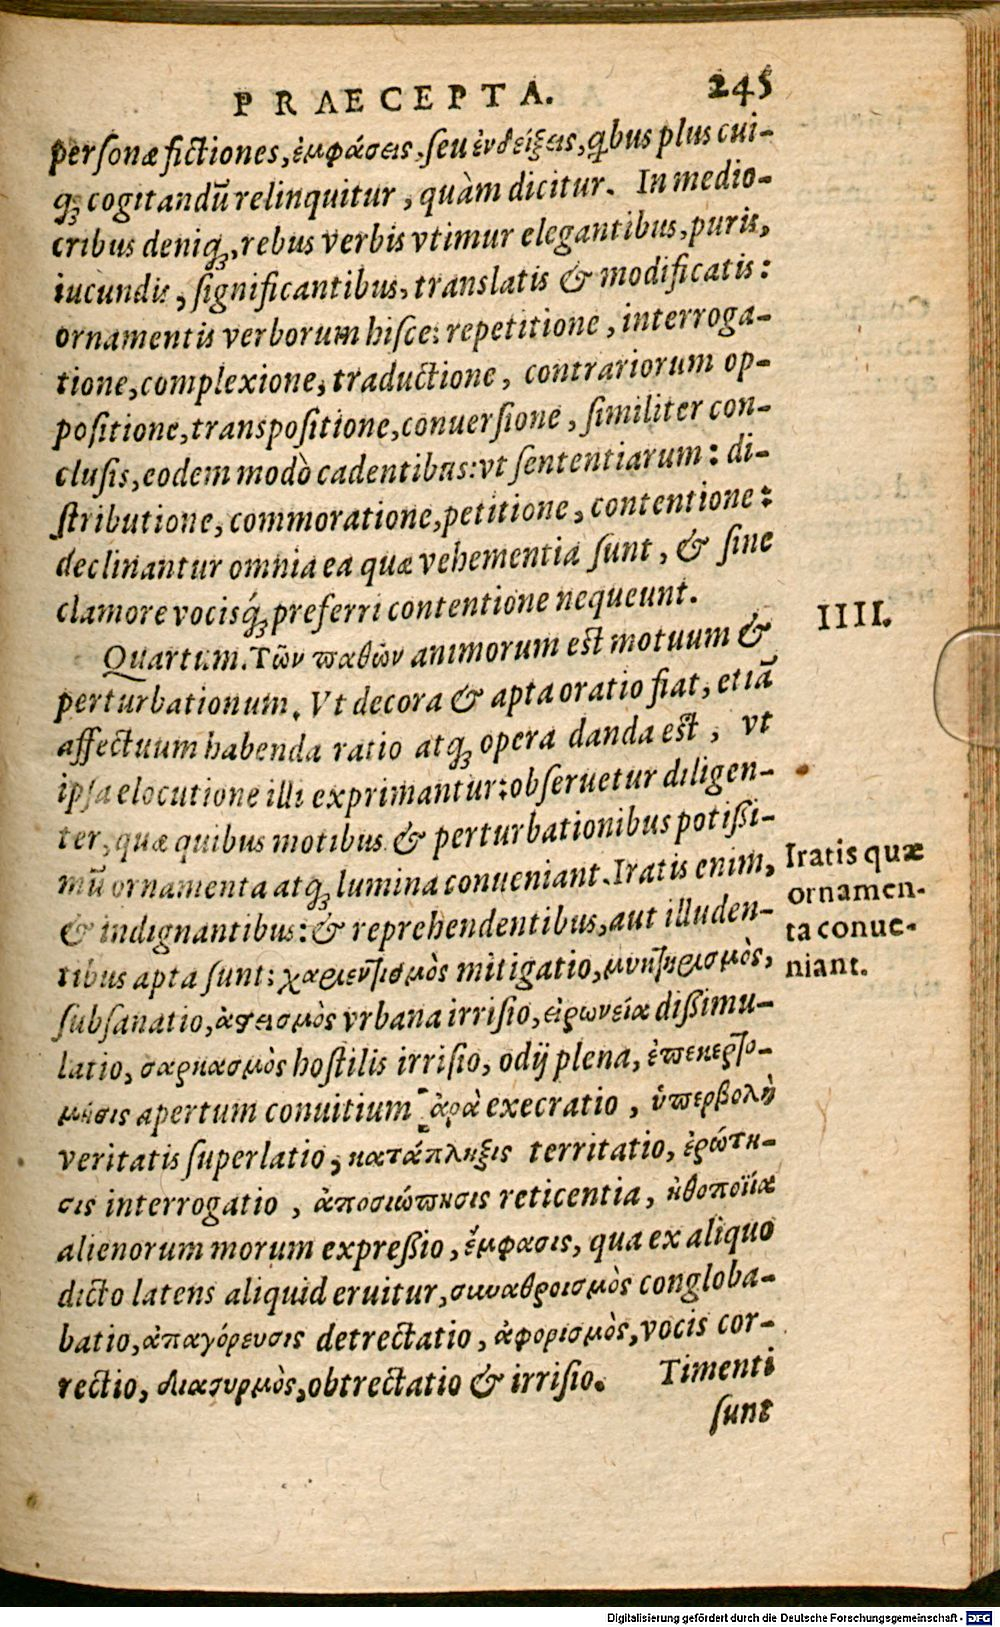 PRAECEPTA. 245
personæ fictiones, ἐμφάσεις, seu ἐνδείξεις, qͥbus plus cui-
qꝫ cogitandũ relinquitur, quàm dicitur. In medio-
cribus deniqꝫ, rebus verbis vtimur elegantibus, puris,
iucundis, significantibus, translatis & modificatis:
ornamentis verborum hisce: repetitione, interroga-
tione, complexione, traductione, contrariorum op-
positione, transpositione, conuersione, similiter con-
clusis, eodem modò cadentibus: vt sententiarum: di-
stributione, commoratione, petitione, contentione:
declinantur omnia ea quæ vehementia sunt, & sine
clamore vocisq́ꝫ preferri contentione nequeunt.
Quartum. Τῶν παθῶν animorum est motuum &
perturbationum. Vt decora & apta oratio fiat, etiã
affectuum habenda ratio atqꝫ opera danda est, vt
ipsa elocutione illi exprimantur: obseruetur diligen-
ter, quæ quibus motibus & perturbationibus potißi-
mũ ornamenta atqꝫ lumina conueniant. Iratis enim,
& indignantibus: & reprehendentibus, aut illuden-
tibus apta sunt: χαριεντισμὸς mitigatio, μυκτηρισμὸς,
subsanatio, ἀστεισμὸς vrbana irrisio, εἰρωνεία dißimu-
latio, σαρκασμὸς hostilis irrisio, odij plena, ἐπεκερτο-
μησις apertum conuitium ἀρὰ execratio, ὑπερβολὴ
veritatis superlatio, κατάπληξις territatio, ἐρώτη-
σις interrogatio, ἀποσιώπησις reticentia, ἠθοποιΐα
alienorum morum expreßio, ἔμφασις, qua ex aliquo
dicto latens aliquid eruitur, συναθροισμὸς congloba-
batio, ἀπαγόρευσις detrectatio, ἀφορισμὸς, vocis cor-
rectio, διασυρμὸς, obtrectatio & irrisio. Timenti
sunt
IIII.
Iratis quæ
ornamen-
ta conue-
niant.
Digitalisierung gefördert durch die Deutsche Forschungsgemeinschaft - DFG